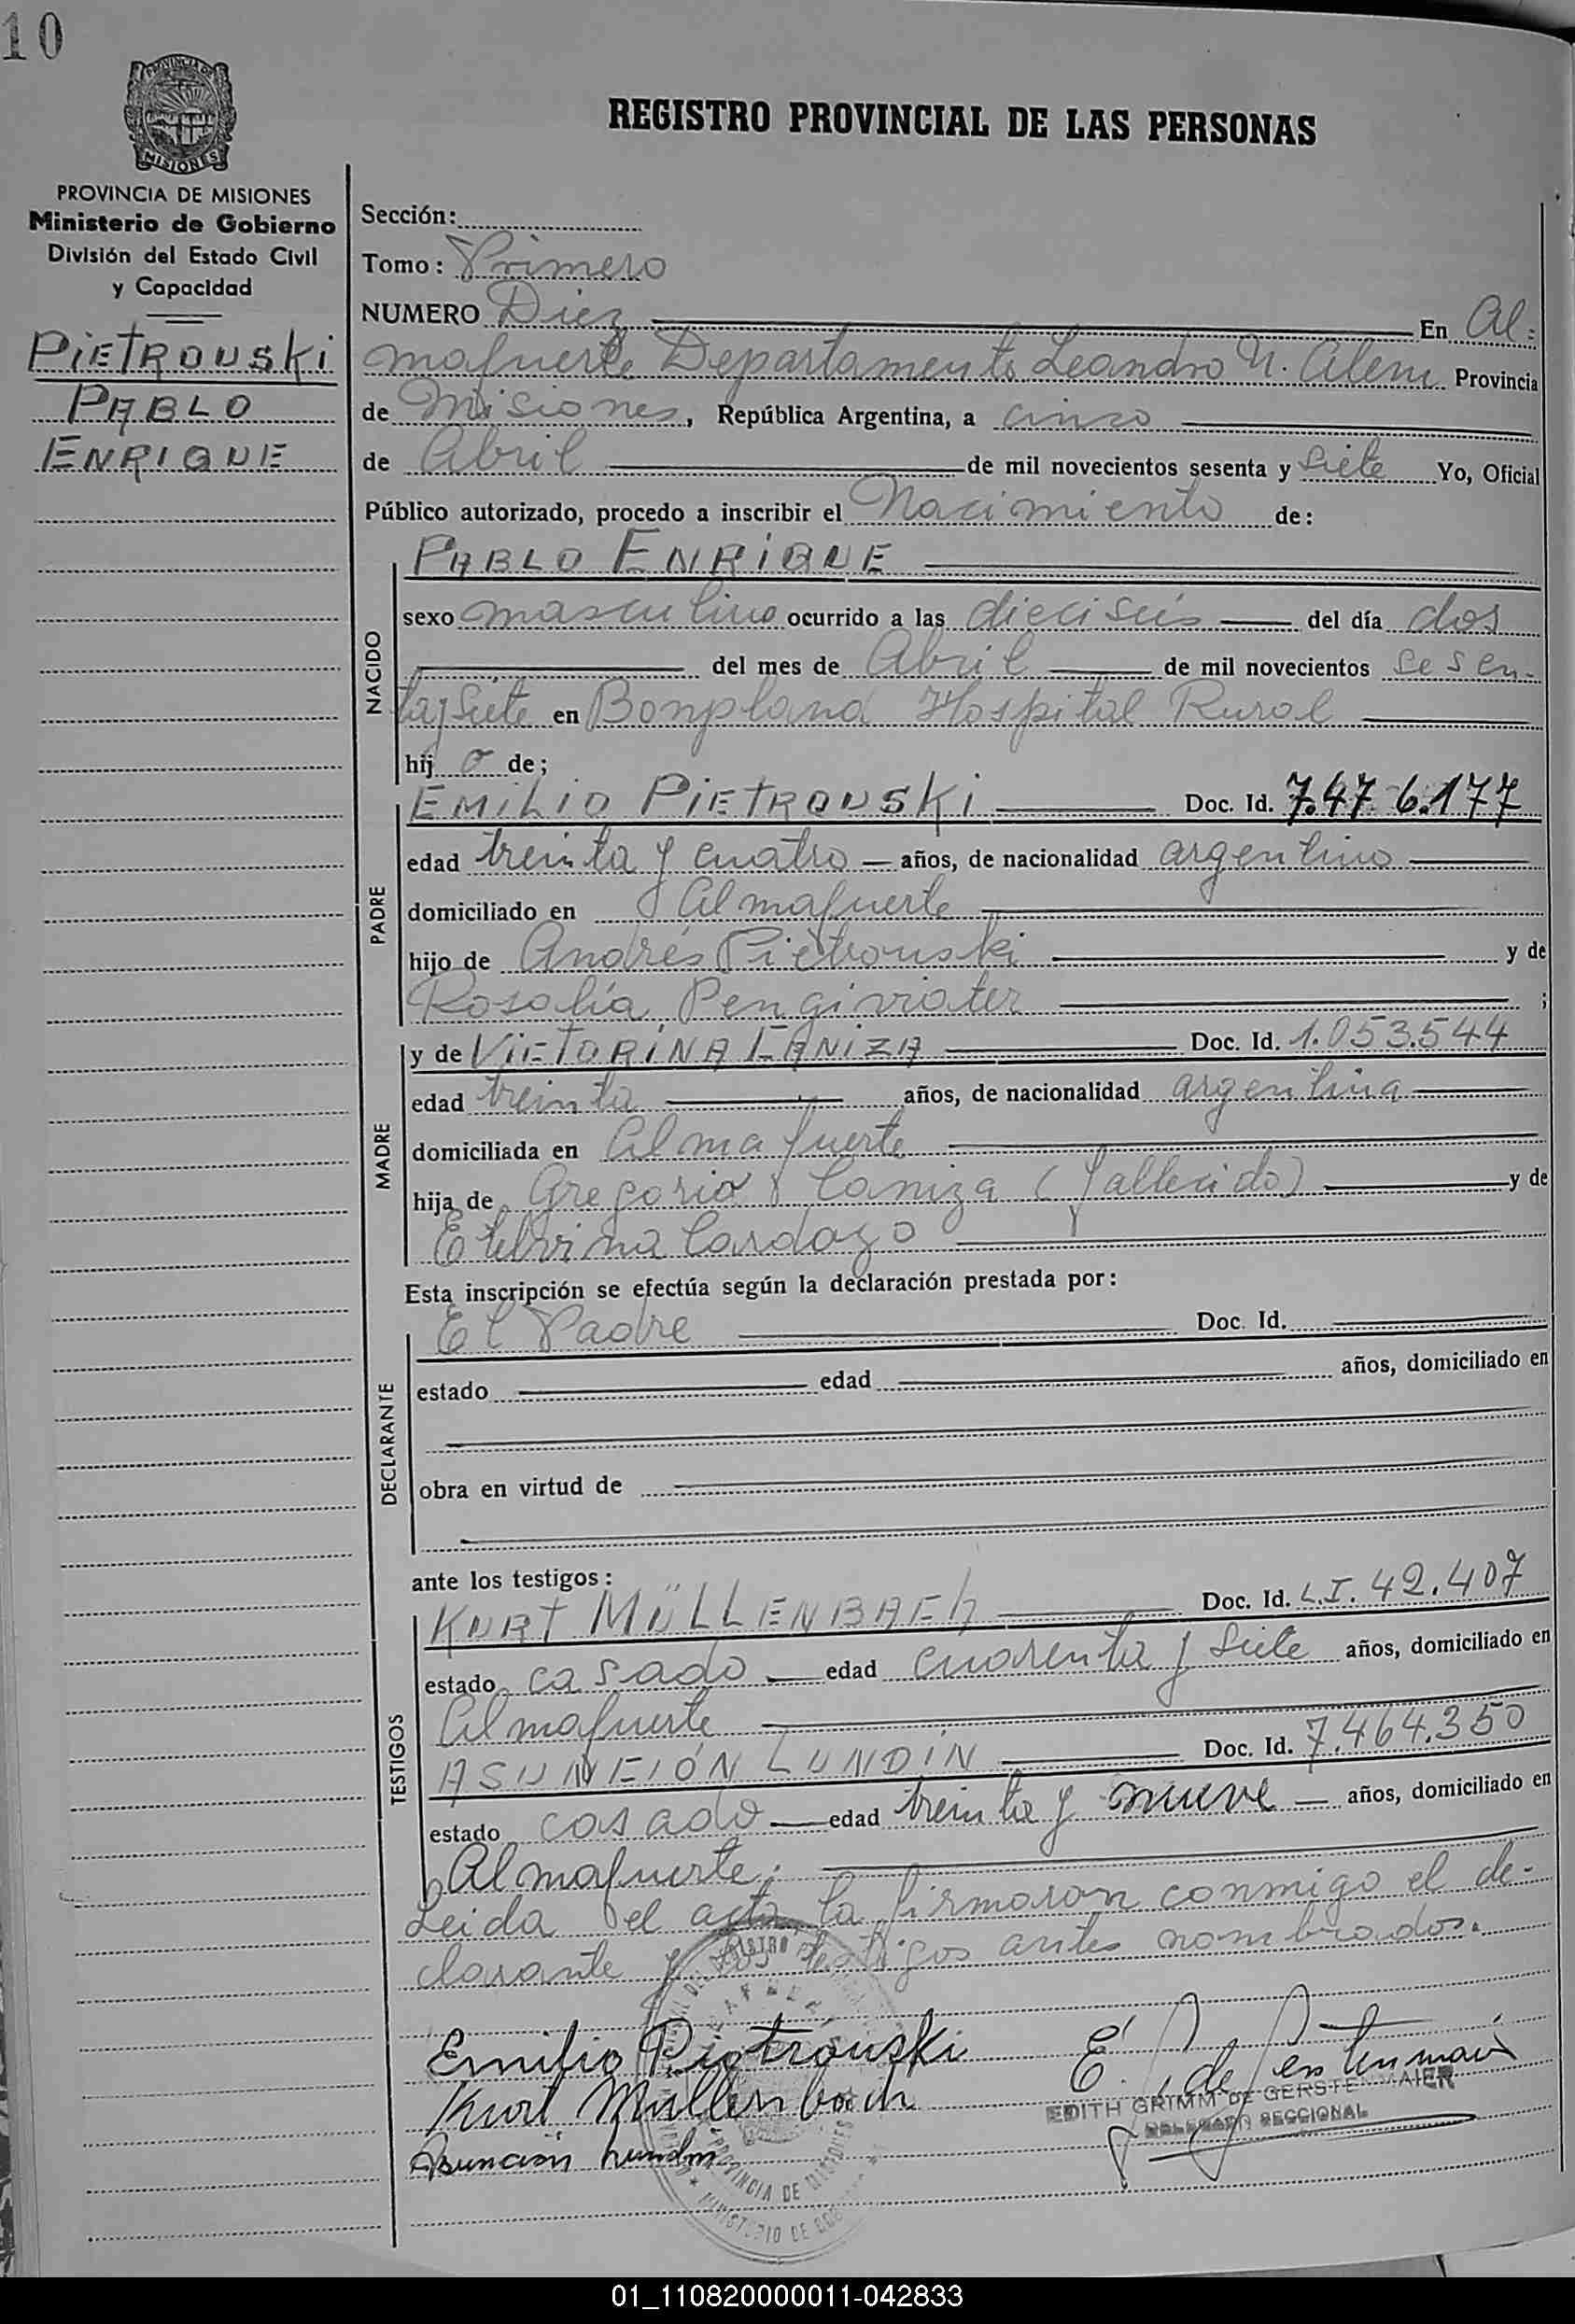 10
PROVINCIA DE
MISIONES
PROVINCIA DE MISIONES
Ministerio de Gobierno
División del Estado Civil
y Capacidad
PIETROUSKI
PABLO
ENRIQUE
REGISTRO PROVINCIAL DE LAS PERSONAS
Sección:
Tomo: Primero
NUMERO Diez En Al-
mafuerte Departamento Leandro N. Alem Provincia
de Misiones, República Argentina, a cinco
de Abril de mil novecientos sesenta y siete Yo, Oficial
Público autorizado, procedo a inscribir el Nacimiento de:
NACIDO
PABLO ENRIQUE
sexo masculino ocurrido a las dieciséis del día dos
del mes de Abril de mil novecientos sesen-
ta y siete en Bonpland Hospital Rural
hij o de;
PADRE
EMILIO PIETROUSKI Doc. Id. 7.476.177
edad treinta y cuatro años, de nacionalidad argentino
domiciliado en Almafuerte
hijo de Andrés Pietrouski y de
Rosalía Pengiviater ;
MADRE
y de VICTORINA CANIZA Doc. Id. 1.053.544
edad treinta años, de nacionalidad argentina
domiciliada en Almafuerte
hija de Gregorio Caniza (fallecido) y de
Etelvina Cardozo
Esta inscripción se efectúa según la declaración prestada por:
DECLARANTE
El Padre Doc. Id.
estado edad años, domiciliado en
obra en virtud de
ante los testigos:
TESTIGOS
KURT MÜLLENBACH Doc. Id. L.I. 42.407
estado casado edad cuarenta y siete años, domiciliado en
Almafuerte
ASUNCIÓN LUNDIN Doc. Id. 7.464.350
estado casado edad treinta y nueve años, domiciliado en
Almafuerte.
Leida el acta la firmaron conmigo el de-
clarante y los testigos antes nombrados.
Emilio Pietrouski
Kurt Müllenbach
Asunción Lundin
EDITH GRIMM DE GERSTENMAIER
DELEGADO SECCIONAL
PROVINCIA DE MISIONES
MINISTERIO DE
01_110820000011-042833